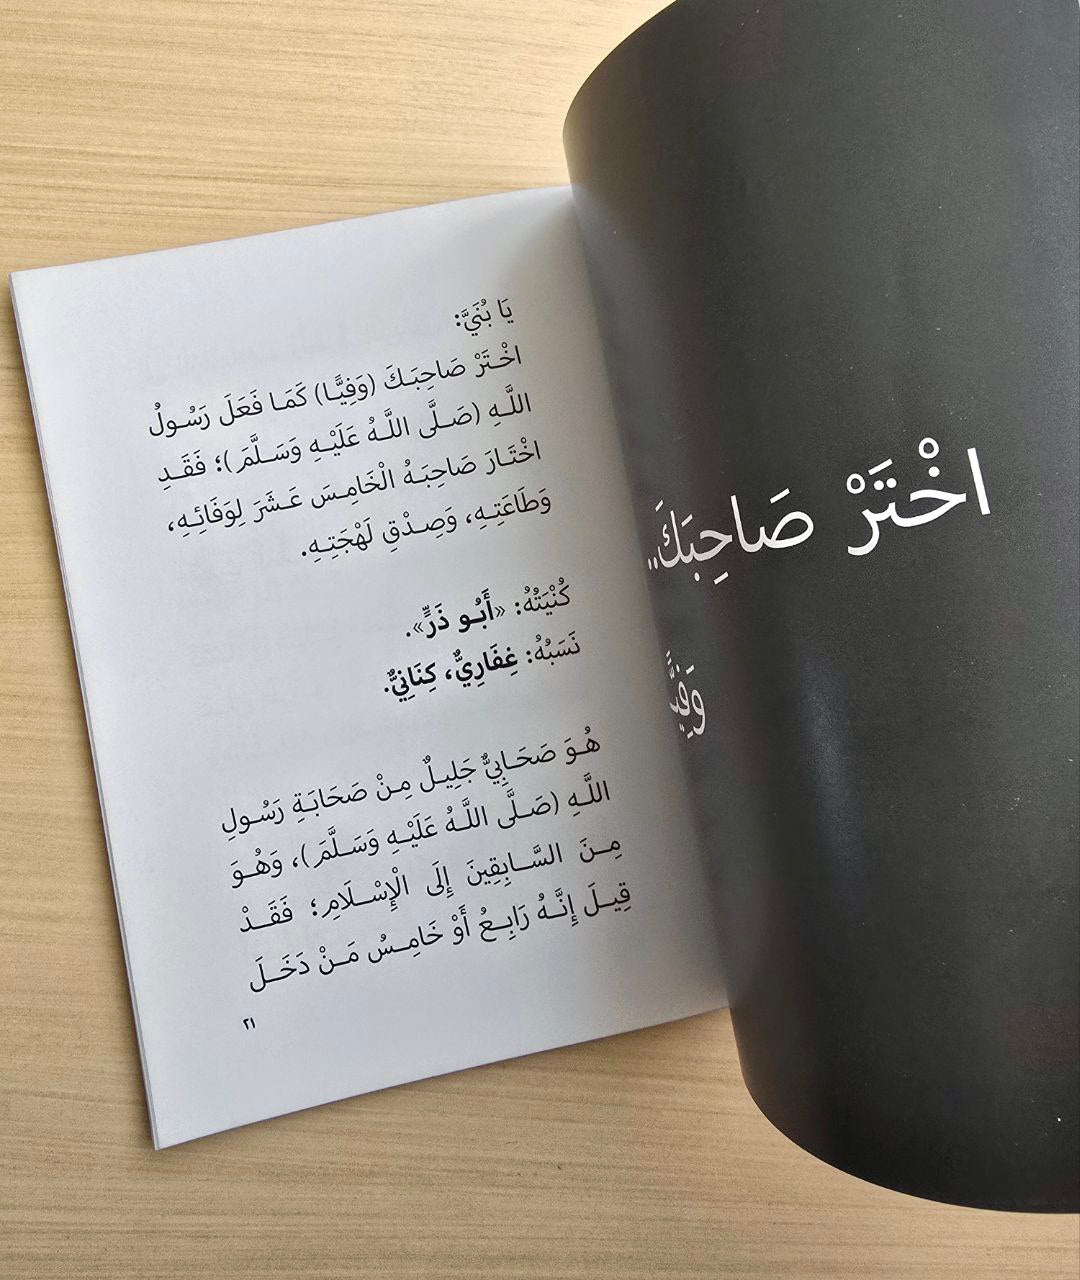 اخْتَرْ صَاحِبَكَ..
يَا بُنَيَّ:
اخْتَرْ صَاحِبَكَ (وَفِيًّا) كَمَا فَعَلَ رَسُولُ
اللَّهِ (صَلَّى اللَّهُ عَلَيْهِ وَسَلَّمَ)؛ فَقَدِ
اخْتَارَ صَاحِبَهُ الْخَامِسَ عَشَرَ لِوَفَائِهِ،
وَطَاعَتِهِ، وَصِدْقِ لَهْجَتِهِ.
كُنْيَتُهُ: «أَبُو ذَرٍّ».
نَسَبُهُ: غِفَارِيٌّ، كِنَانِيٌّ.
هُوَ صَحَابِيٌّ جَلِيلٌ مِنْ صَحَابَةِ رَسُولِ
اللَّهِ (صَلَّى اللَّهُ عَلَيْهِ وَسَلَّمَ)، وَهُوَ
مِنَ السَّابِقِينَ إِلَى الْإِسْلَامِ؛ فَقَدْ
قِيلَ إِنَّهُ رَابِعُ أَوْ خَامِسُ مَنْ دَخَلَ
٢١